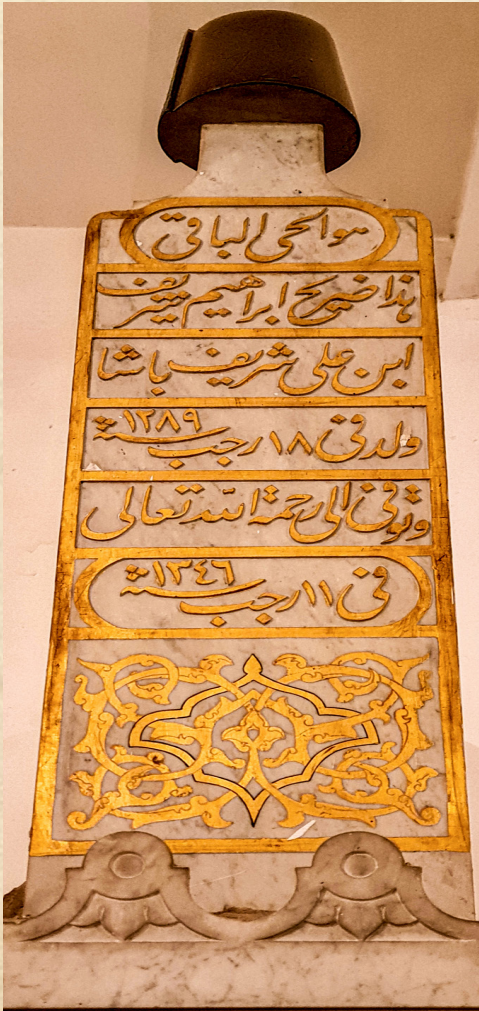 هو الحى الباقى
هذا ضريح ابراهيم شريف
ابن على شريف باشا
ولد فى ١٨ رجب سنة ١٢٨٩
وتوفى الى رحمة الله تعالى
فى ١١ رجب سنة ١٣٤٦